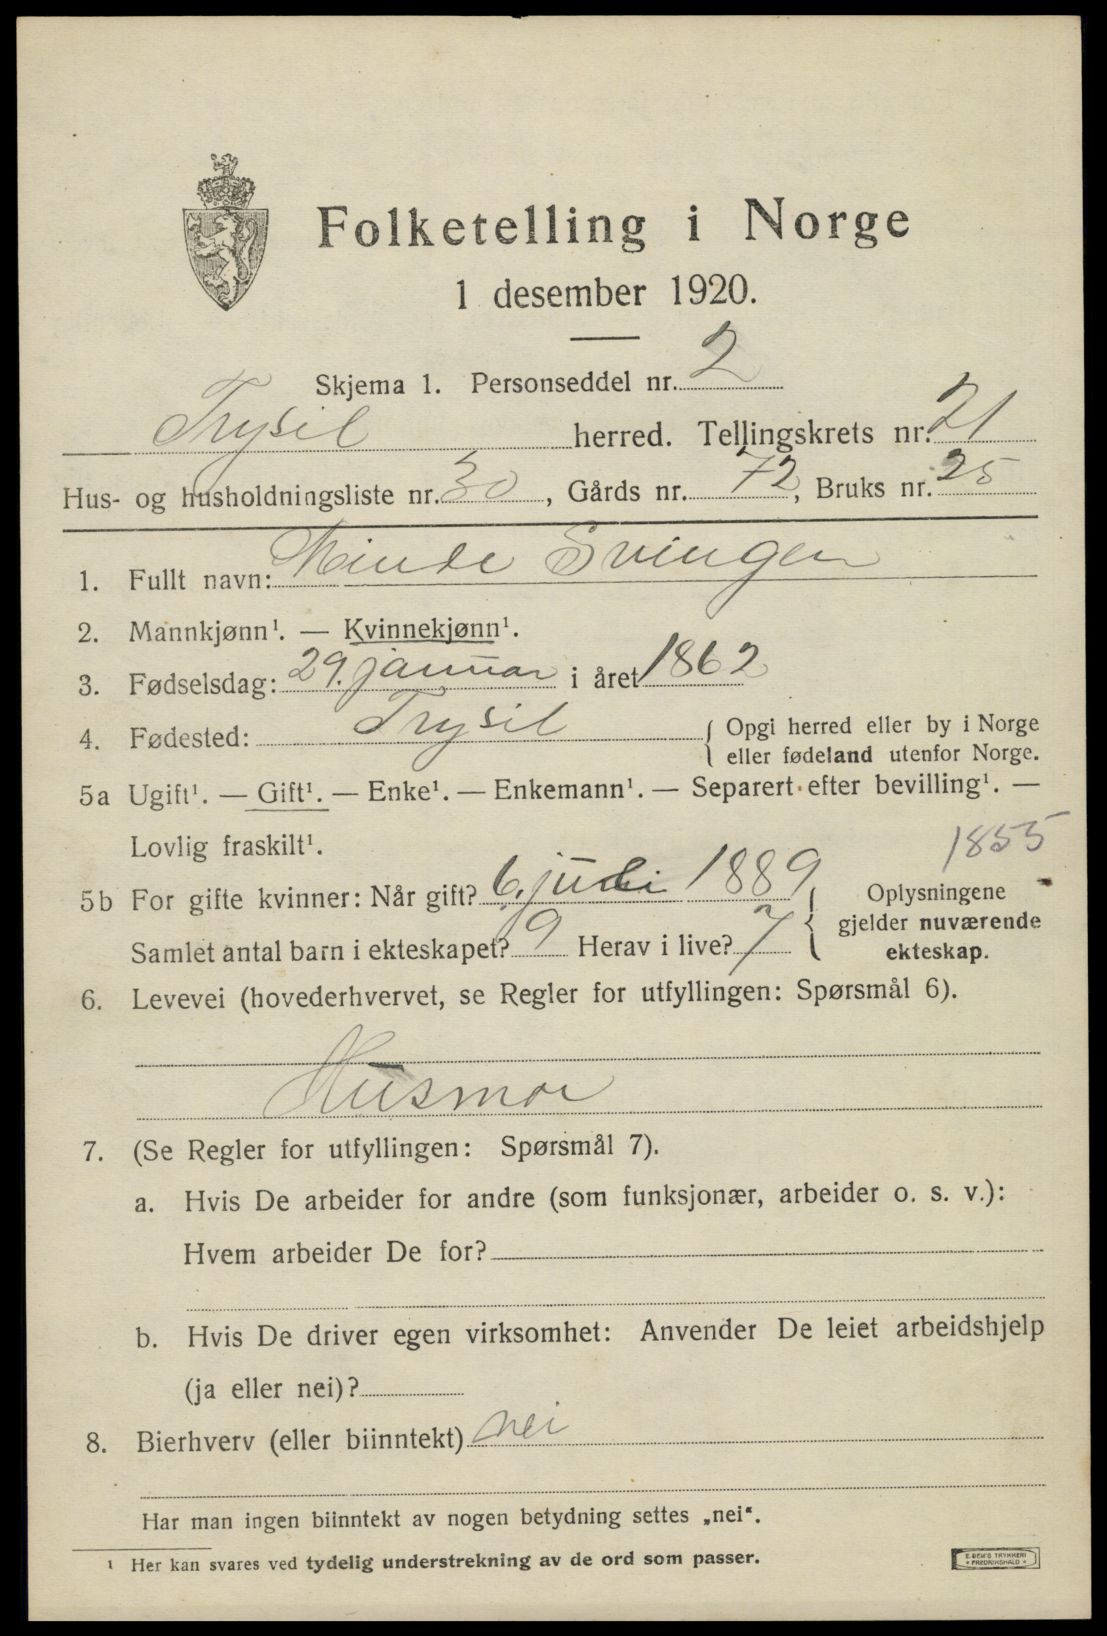 Folketelling i Norge
1 desember 1920.
Skjema 1. Personseddel nr. 2
Trysil herred. Tellingskrets nr. 21
Hus- og husholdningsliste nr. 30, Gårds nr. 72, Bruks nr. 25
1. Fullt navn: Svingen
2. Mannkjønn¹. — Kvinnekjønn¹.
3. Fødselsdag: 29. januar i året 1862
4. Fødested: Trysil { Opgi herred eller by i Norge
eller fødeland utenfor Norge.
5a Ugift¹. — Gift¹. — Enke¹. — Enkemann¹. — Separert efter bevilling¹. —
Lovlig fraskilt¹.
1855
5b For gifte kvinner: Når gift? 6. juli 1889
Samlet antal barn i ekteskapet? 9 Herav i live? 7
{ Oplysningene
gjelder nuværende
ekteskap.
6. Levevei (hovederhvervet, se Regler for utfyllingen: Spørsmål 6).
Husmor
7. (Se Regler for utfyllingen: Spørsmål 7).
a. Hvis De arbeider for andre (som funksjonær, arbeider o. s. v.):
Hvem arbeider De for?
b. Hvis De driver egen virksomhet: Anvender De leiet arbeidshjelp
(ja eller nei)?
8. Bierhverv (eller biinntekt) nei
Har man ingen biinntekt av nogen betydning settes „nei“.
¹ Her kan svares ved tydelig understrekning av de ord som passer.
E. SEM'S TRYKKERI
FREDRIKSHALD